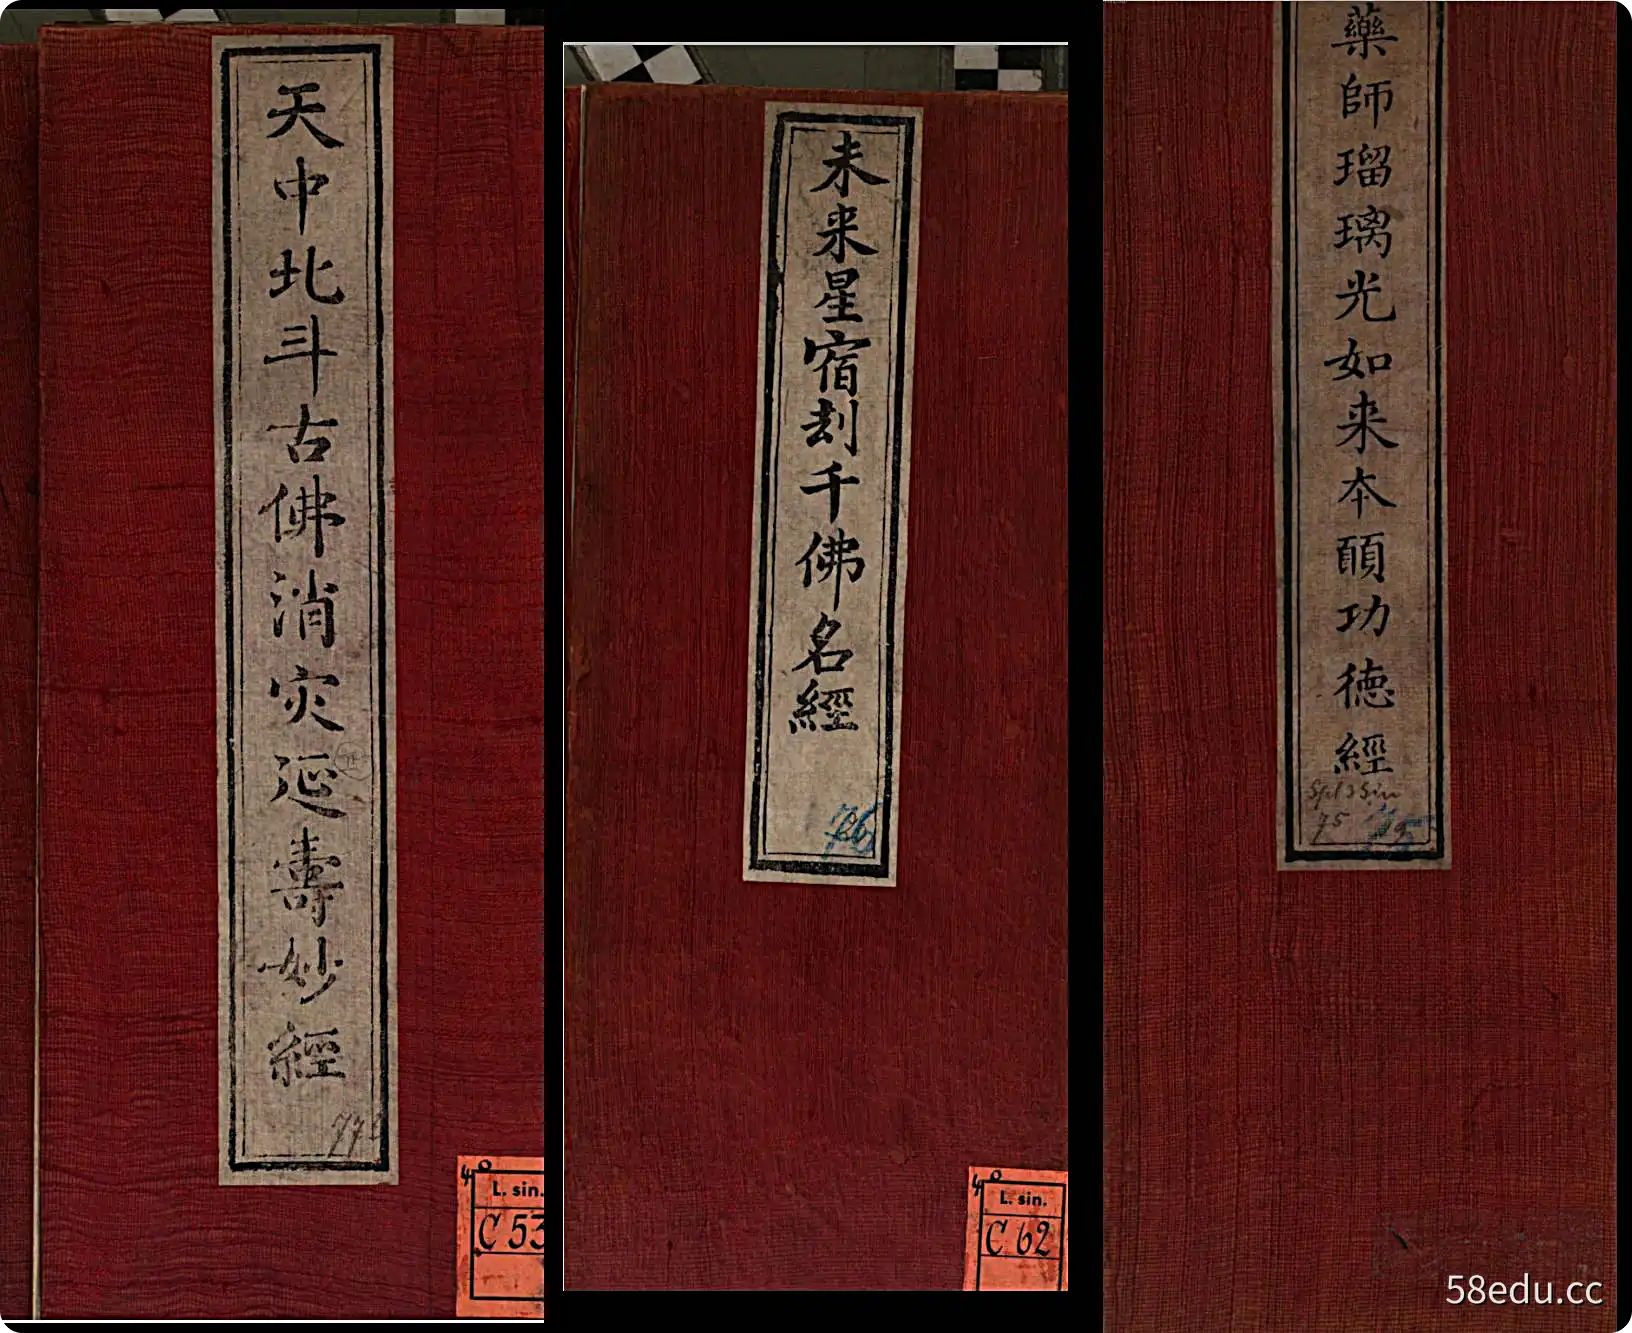 天中北斗古佛消灾延壽妙經
77
L. sin.
C 53
未来星宿刦千佛名經
76
L. sin.
C 62
藥師瑠璃光如来本願功徳經
75
75
58edu.cc